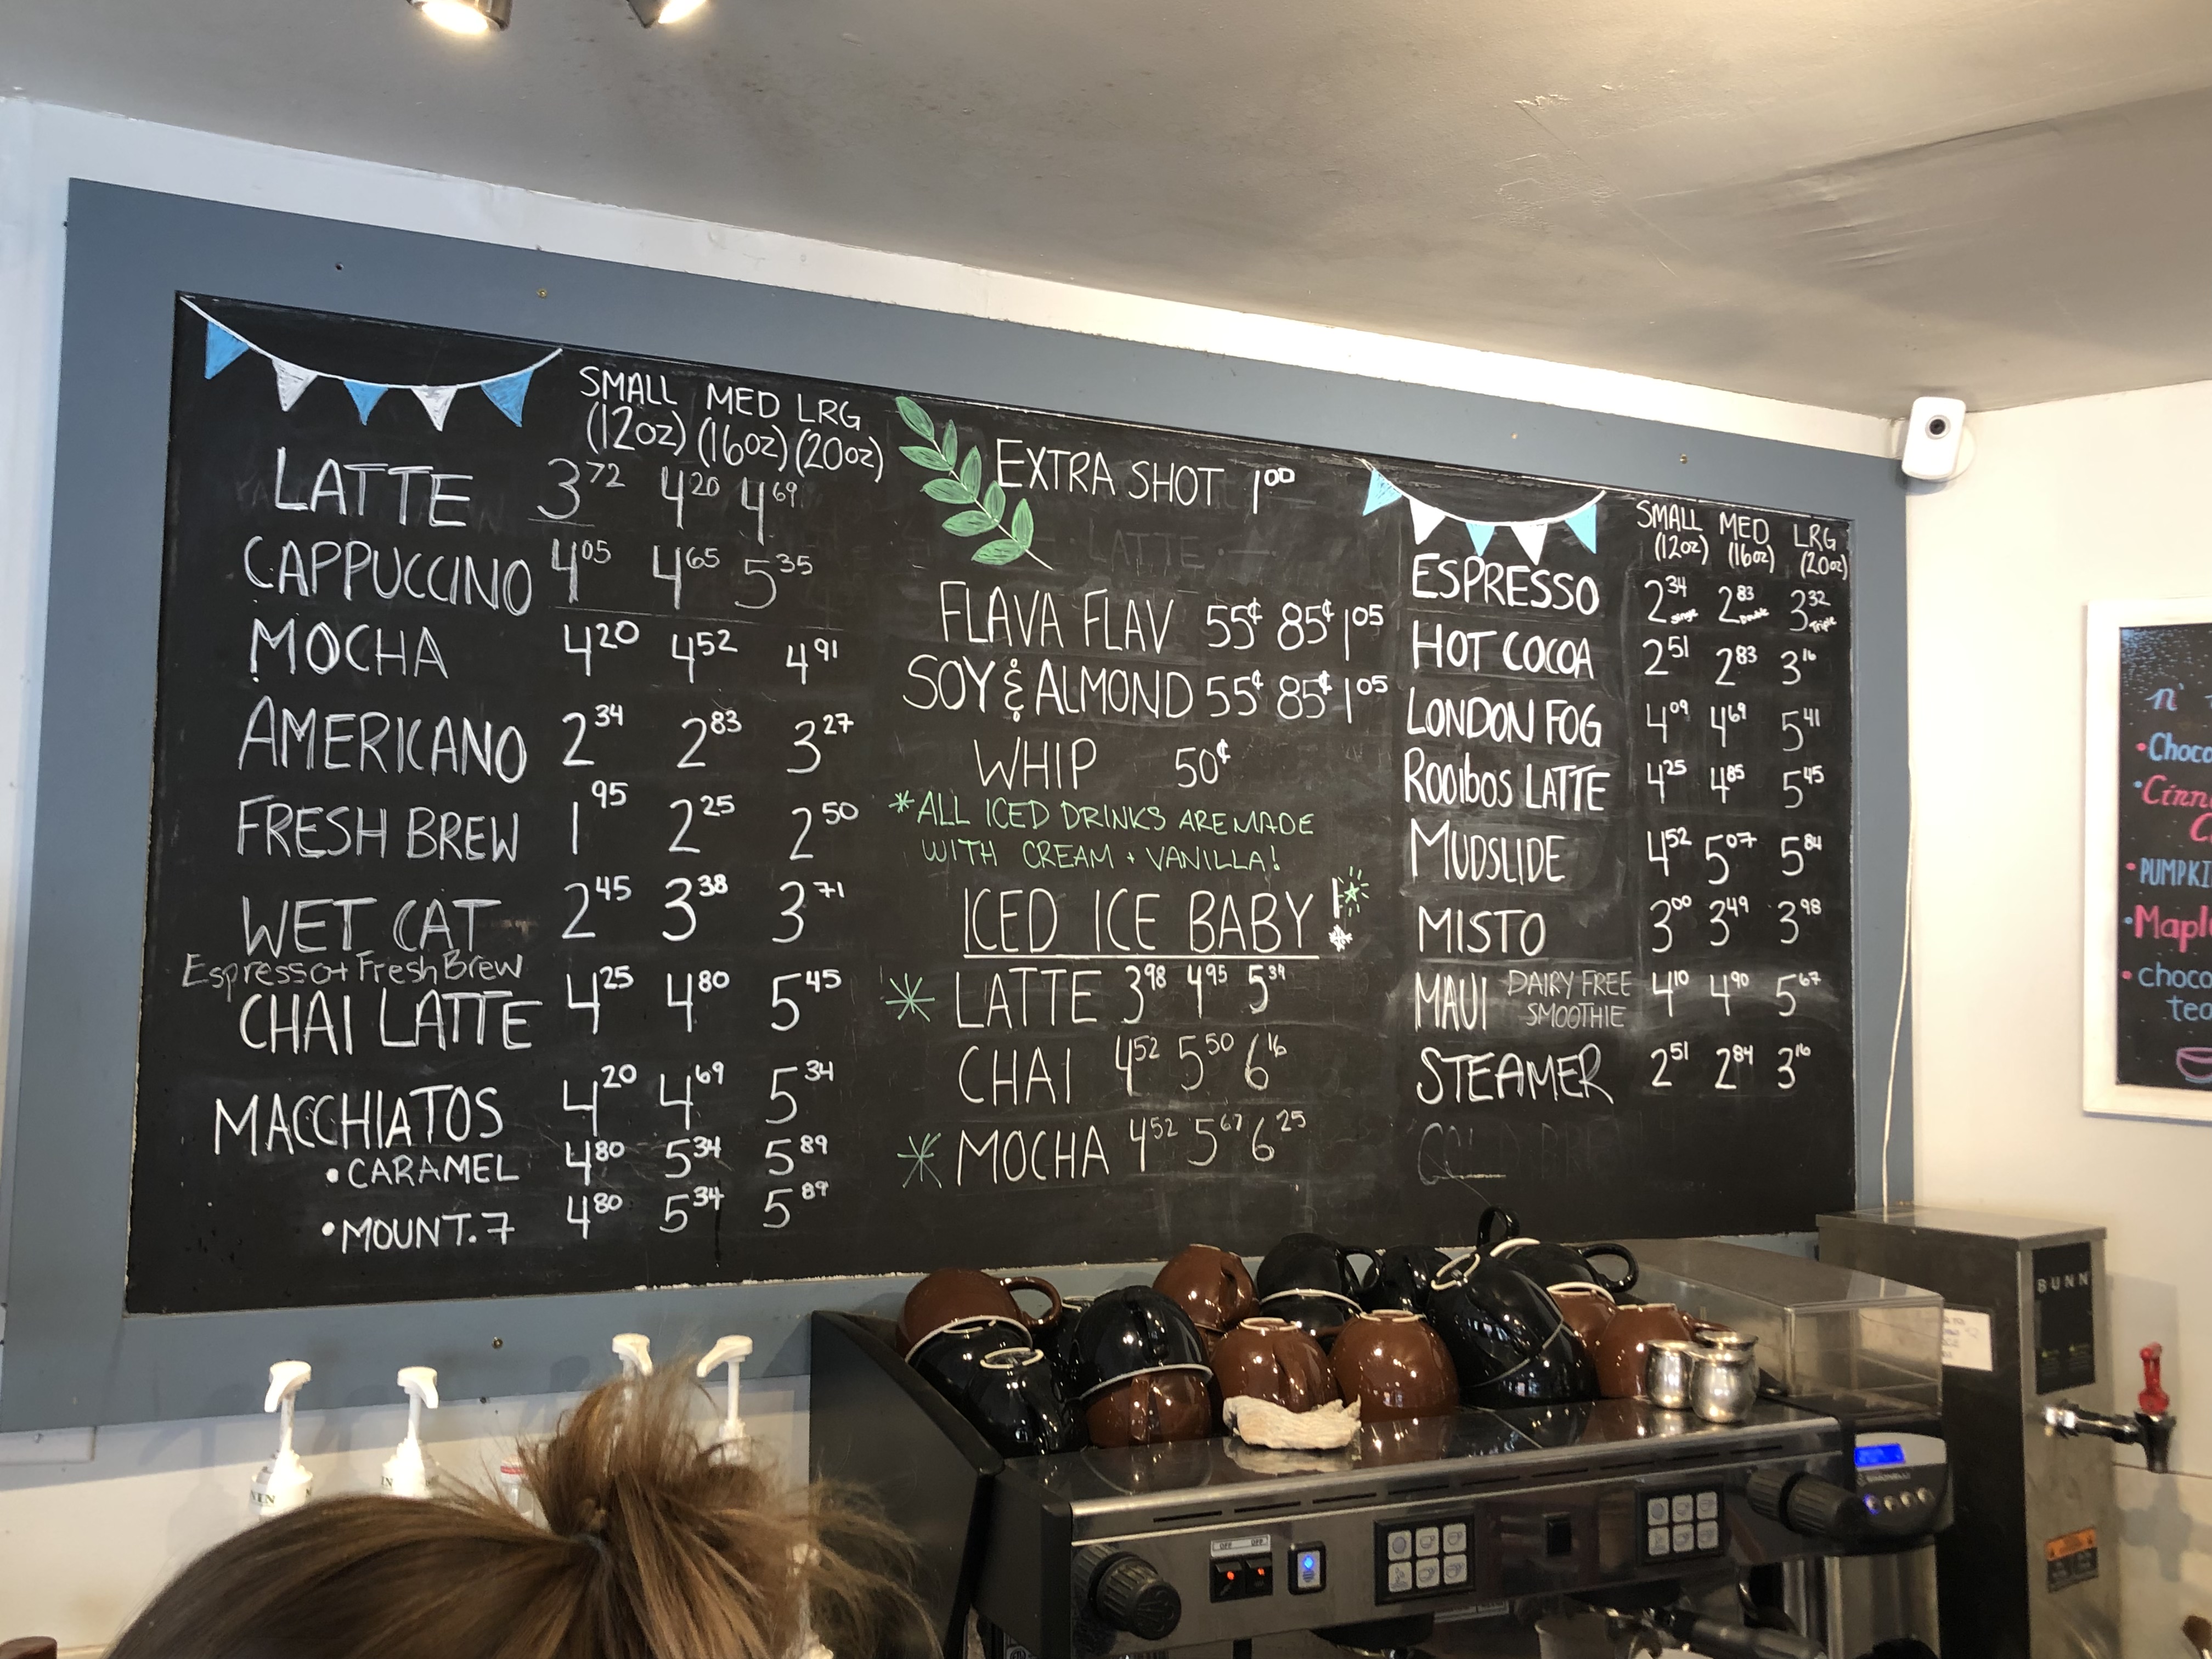 SMALL MED LRG
(12oz) (16oz) (20oz)
LATTE 3.72 4.20 4.69
CAPPUCCINO 4.05 4.65 5.35
MOCHA 4.20 4.52 4.91
AMERICANO 2.34 2.83 3.27
FRESH BREW 1.95 2.25 2.50
WET CAT 2.45 3.38 3.71
Espresso + Fresh Brew
CHAI LATTE 4.25 4.80 5.45
MACCHIATOS 4.20 4.69 5.34
• CARAMEL 4.80 5.34 5.89
• MOUNT. 7 4.80 5.34 5.89
EXTRA SHOT 1.00
LATTE
FLAVA FLAV 55¢ 85¢ 1.05
SOY & ALMOND 55¢ 85¢ 1.05
WHIP 50¢
*ALL ICED DRINKS ARE MADE
WITH CREAM + VANILLA!
ICED ICE BABY!
* LATTE 3.98 4.95 5.39
CHAI 4.52 5.50 6.16
* MOCHA 4.52 5.67 6.25
SMALL MED LRG
(12oz) (16oz) (20oz)
ESPRESSO 2.34 Single 2.83 Double 3.32 Triple
HOT COCOA 2.51 2.83 3.16
LONDON FOG 4.09 4.69 5.41
ROOibos LATTE 4.25 4.85 5.45
MUDSLIDE 4.52 5.07 5.84
MISTO 3.00 3.49 3.98
MAUI DAIRY FREE SMOOTHIE 4.10 4.90 5.67
STEAMER 2.51 2.84 3.16
n'
• Choco
• Cinn
C
• PUMPKI
• Mapl
• choco
tea
BUNN
OFF OFF